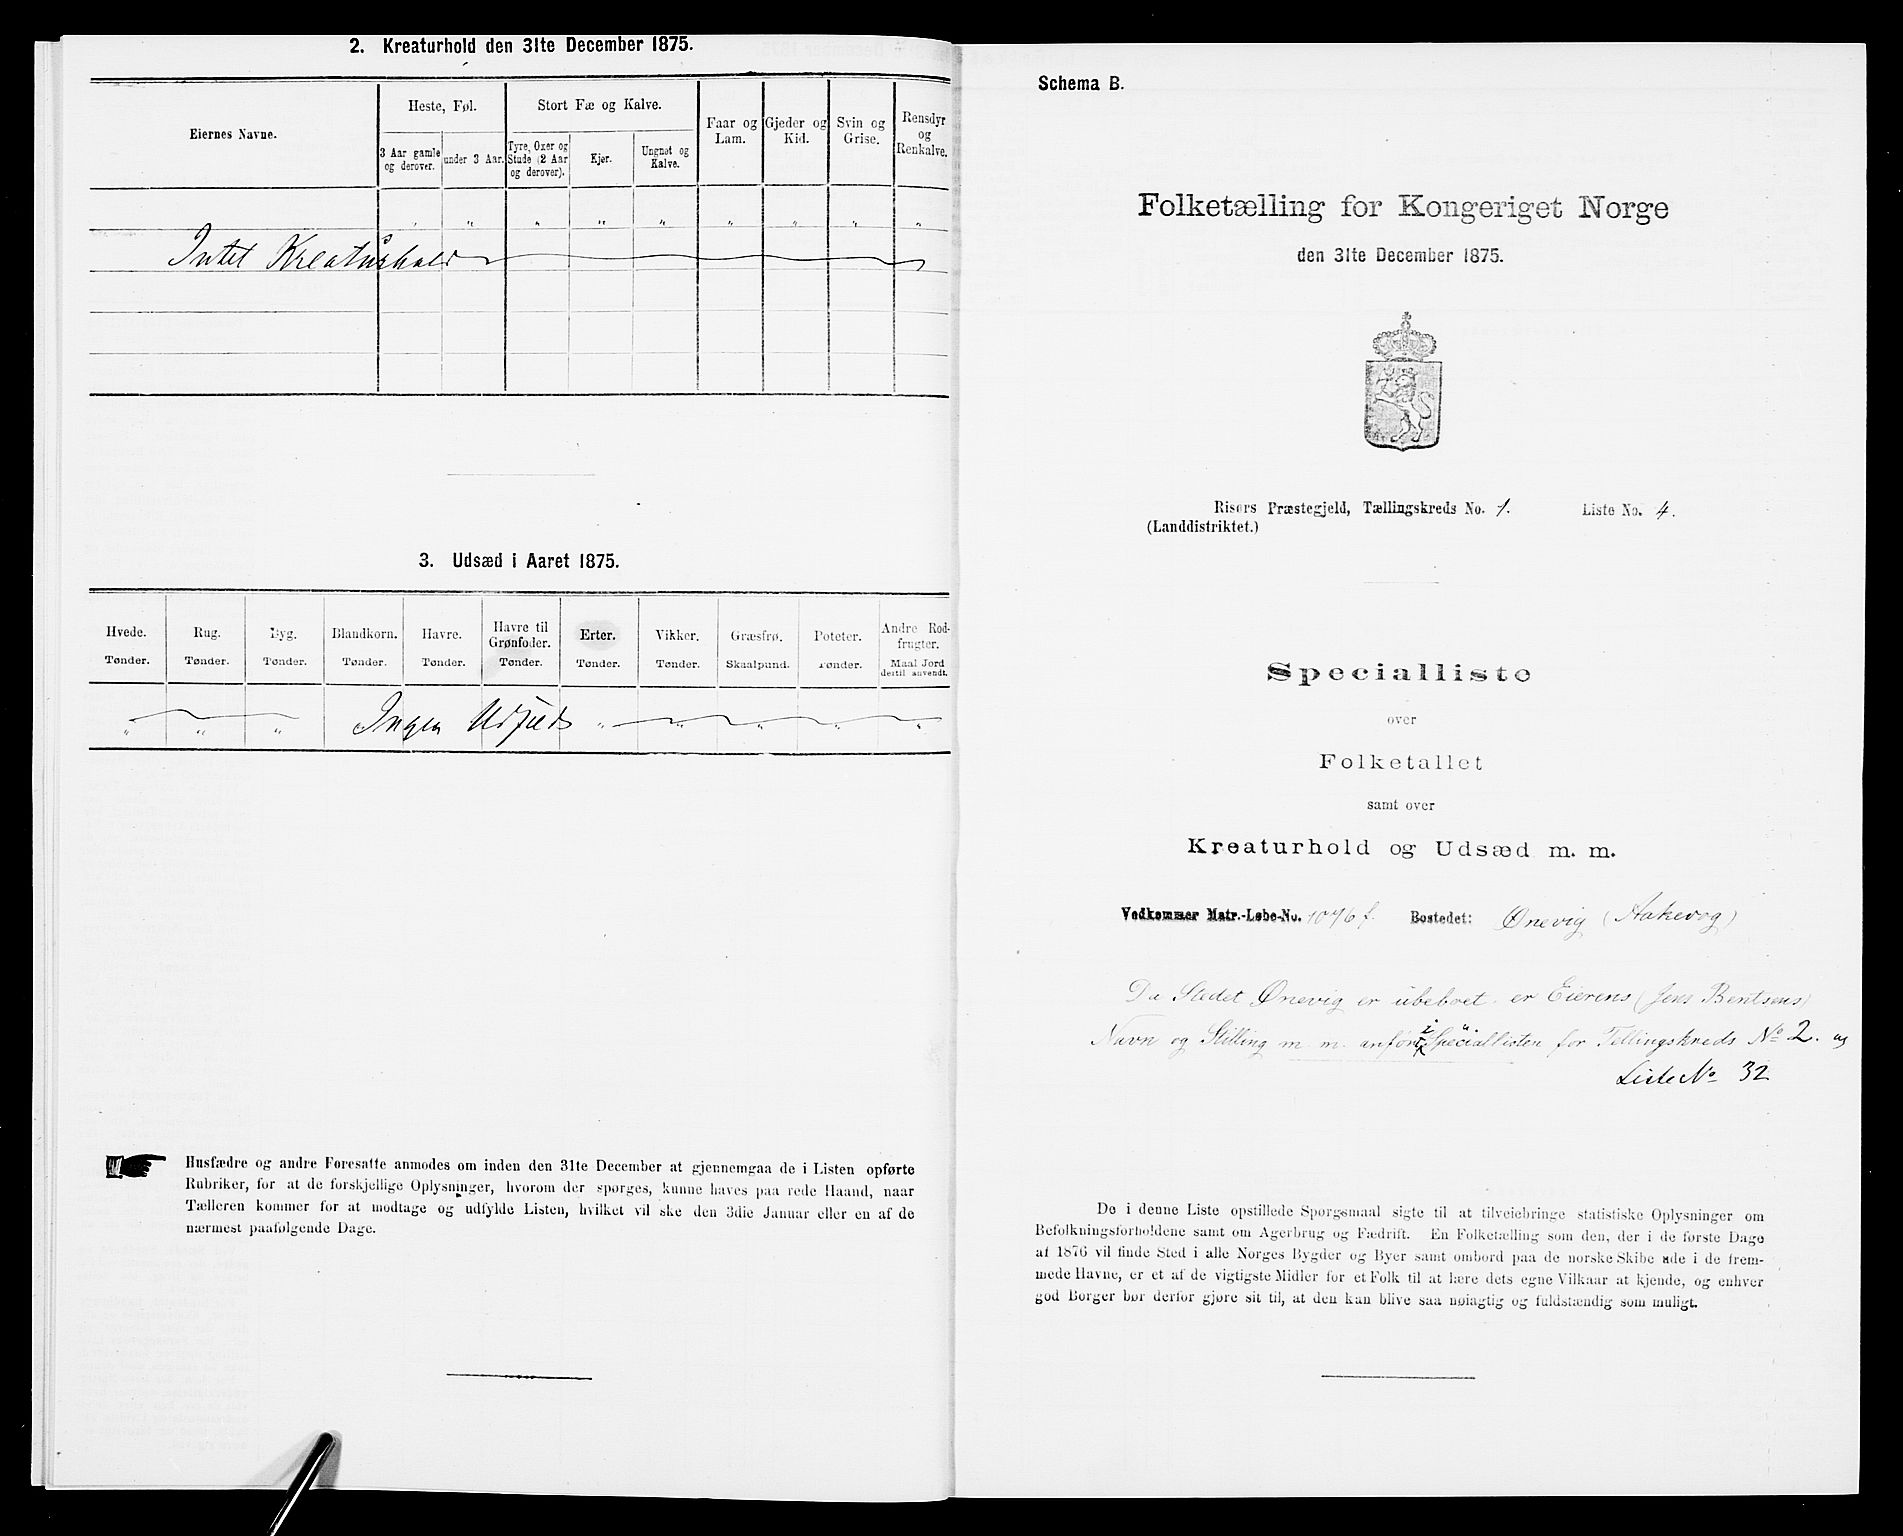 2. Kreaturhold den 31te December 1875.
Eiernes Navne.
Heste, Føl.
3 Aar gamle
og derover.
under 3 Aar.
Stort Fæ og Kalve.
Tyre, Oxer og
Stude (2 Aar
og derover).
Kjør.
Ungnøt og
Kalve.
Faar og
Lam.
Gjeder og
Kid.
Svin og
Grise.
Rensdyr
og
Renkalve.
" " " " " " " " "
Intet Kreaturhold
3. Udsæd i Aaret 1875.
Hvede.
Tønder.
Rug.
Tønder.
Byg.
Tønder.
Blandkorn.
Tønder.
Havre.
Tønder.
Havre til
Grønfoder.
Tønder.
Erter.
Tønder.
Vikker.
Tønder.
Græsfrø.
Skaalpund.
Poteter.
Tønder.
Andre Rod-
frugter.
Maal Jord
dertil anvendt.
" " " Ingen Udsæd " " " " "
Husfædre og andre Foresatte anmodes om inden den 31te December at gjennemgaa de i Listen opførte
Rubriker, for at de forskjellige Oplysninger, hvorom der spørges, kunne haves paa rede Haand, naar
Tælleren kommer for at modtage og udfylde Listen, hvilket vil ske den 3die Januar eller en af de
nærmest paafølgende Dage.
Schema B.
Folketælling for Kongeriget Norge
den 31te December 1875.
Risørs Præstegjeld, Tællingskreds No. 1. Liste No. 4.
(Landdistriktet.)
Specialliste
over
Folketallet
samt over
Kreaturhold og Udsæd m. m.
Vedkommer Matr.-Løbe-No. 1076 f. Bostedet: Ønevig (Aakevog)
Da Stedet Ønevig er ubeboet er Eierens (Jens Bentsens)
Navn og Stilling m. m. anført i Speciallisten for Tellingskreds No 2. og
Liste No 32
De i denne Liste opstillede Spørgsmaal sigte til at tilveiebringe statistiske Oplysninger om
Befolkningsforholdene samt om Agerbrug og Fædrift. En Folketælling som den, der i de første Dage
af 1876 vil finde Sted i alle Norges Bygder og Byer samt ombord paa de norske Skibe ude i de frem-
mede Havne, er et af de vigtigste Midler for et Folk til at lære dets egne Vilkaar at kjende, og enhver
god Borger bør derfor gjøre sit til, at den kan blive saa nøiagtig og fuldstændig som muligt.